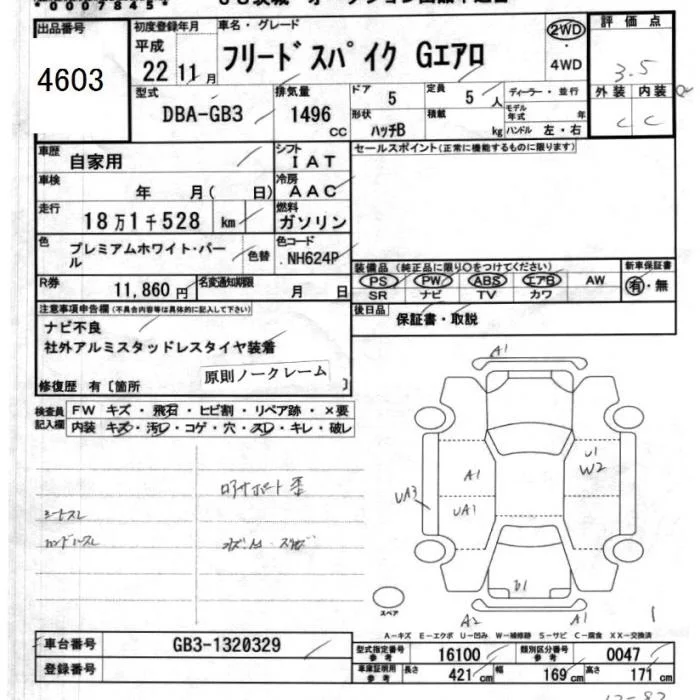 *00078845*
出品番号
4603
初度登録年月
平成
22 11月
車名・グレード
フリードスパイク Gエアロ
2WD
・
4WD
評価点
3.5
外装 内装
C C
型式
DBA-GB3
排気量
1496
CC
ドア
5
定員
5 人
形状
ハッチB
積載
kg
ディーラー・並行
モデル年式
年
ハンドル 左・右
車歴
自家用
シフト
IAT
セールスポイント(正常に機能するものに限ります)
車検
年 月( 日)
冷房
AAC
走行
18万1千528 km
燃料
ガソリン
色
プレミアムホワイト・パール
色替
色コード
NH624P
装備品 (純正品に限り○をつけてください)
新車保証書
PS PW ABS エアB AW
SR ナビ TV カワ
有・無
R券
11,860 円
名変通知期限
月 日
後日品
保証書・取説
注意事項申告欄(不具合内容等は具体的に記入して下さい)
ナビ不良
社外アルミスタッドレスタイヤ装着
原則ノークレーム
修復歴 有〔箇所 〕
検査員
記入欄
FW キズ・飛石・ヒビ割・リペア跡・×要
内装 キズ・汚レ・コゲ・穴・スレ・キレ・破レ
シートスレ
ハンドルスレ
A1
U1
W2
A1
UA3
UA1
b1
A2
A1
スペア
1
A-キズ E-エクボ U-凹み W-補修跡 S-サビ C-腐食 XX-交換済
車台番号
GB3-1320329
登録番号
型式指定番号
参考
16100
類別区分番号
参考
0047
車庫証明用
参考
長さ
421 cm
幅
169 cm
高さ
171 cm